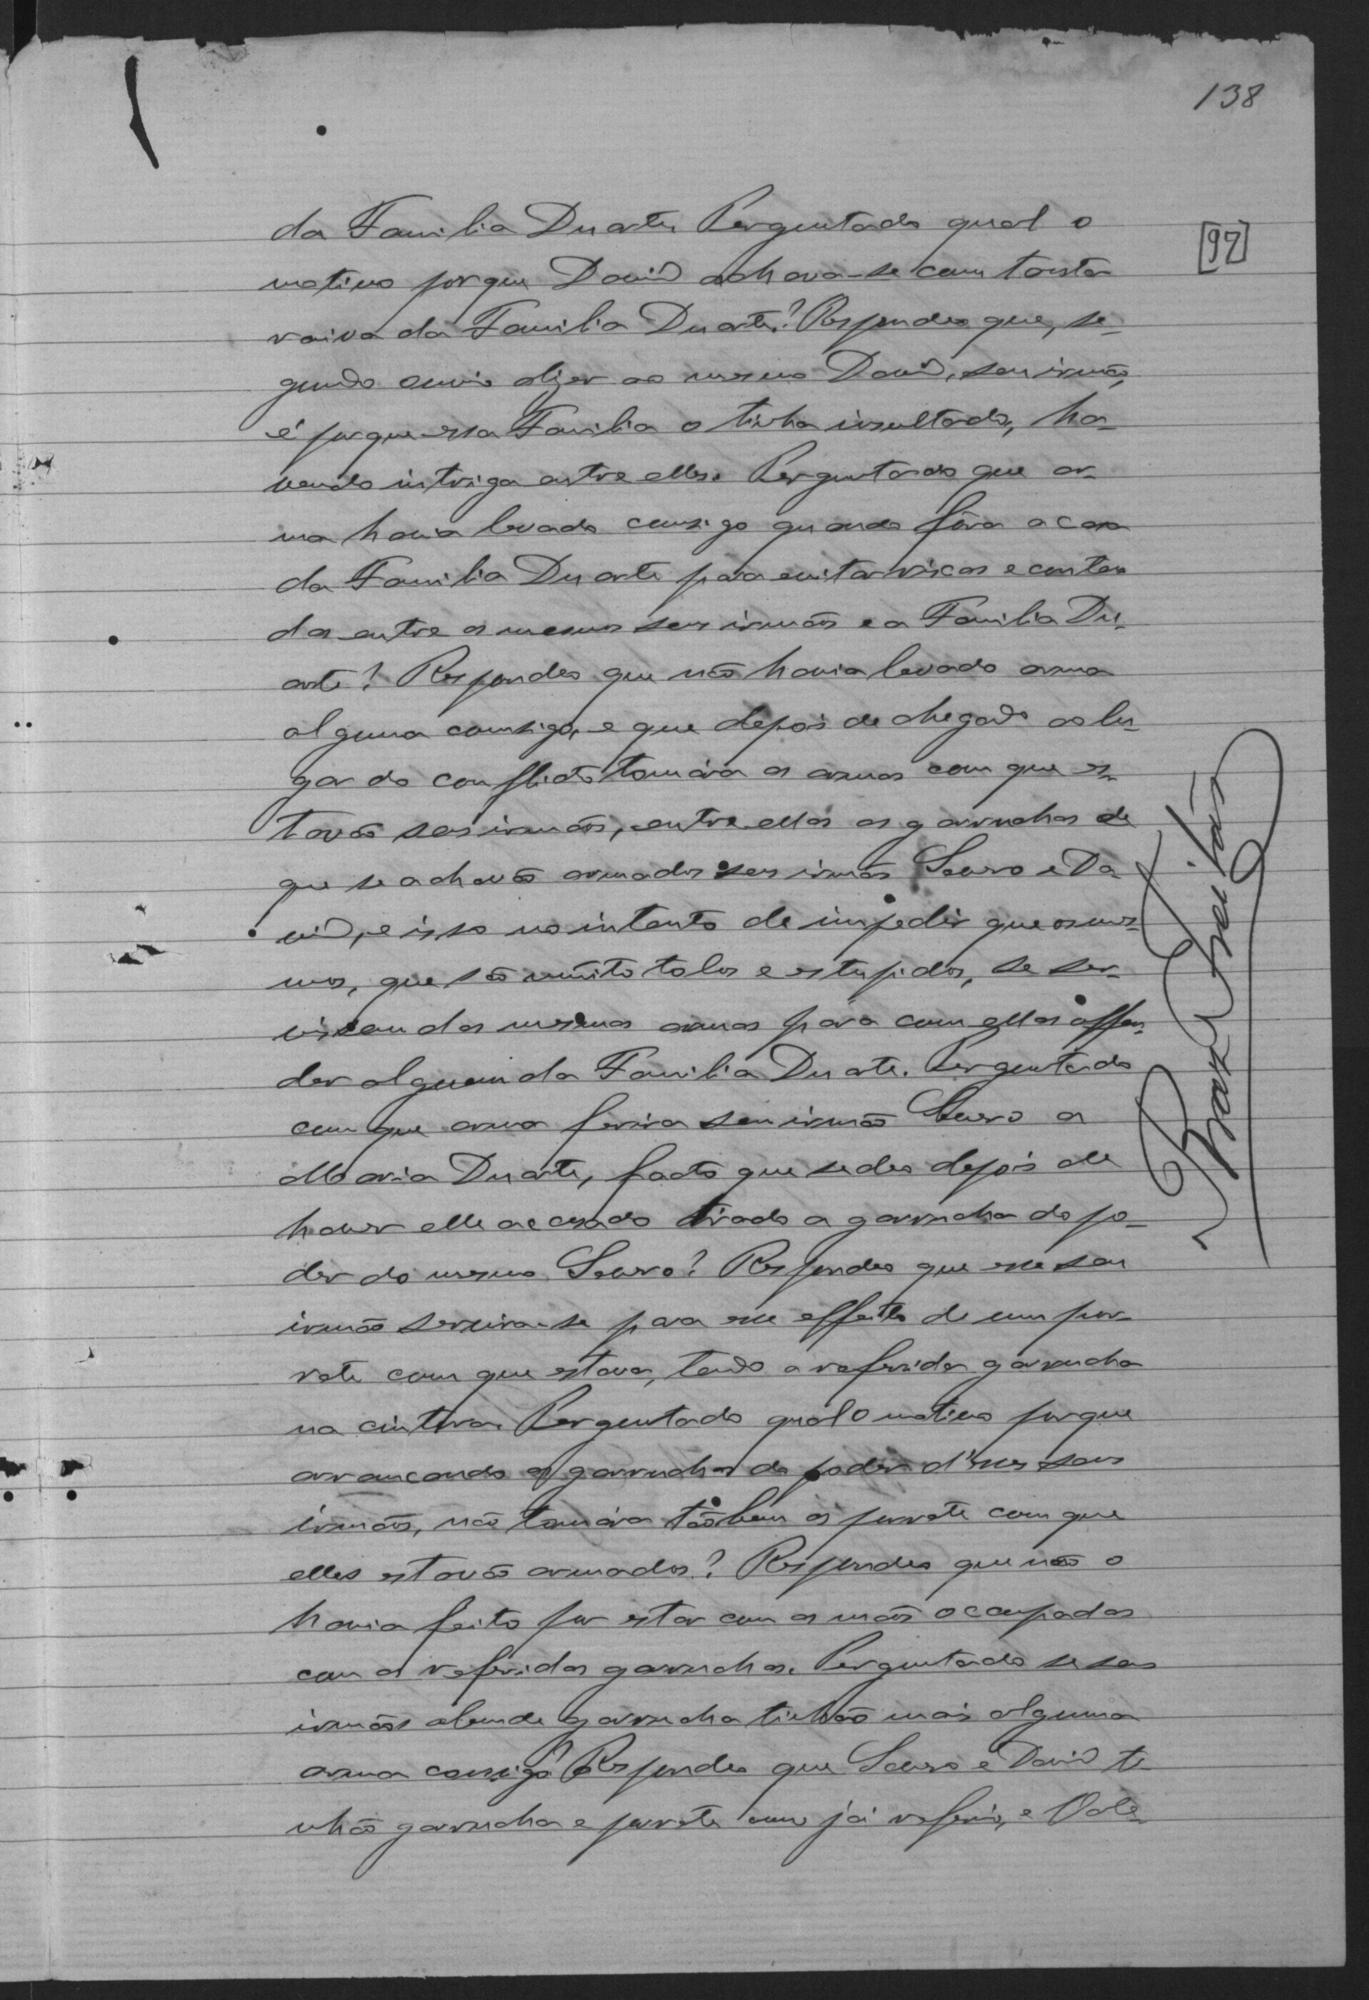 138
[97]
da Familia Duarte. Perguntado qual o
motivo porque David achava-se com tanta
raiva da Familia Duarte? Respondeo que, se-
gundo ouvio dizer ao mesmo David, seu irmão,
é porque essa Familia o tinha insultado, ha-
vendo intriga entre elles. Perguntado que ar-
ma havia levado comsigo quando fôra a casa
da Familia Duarte para evitar rixas e conten-
das entre os mesmos seus irmãos e a Familia Du-
arte? Respondeo que não havia levado arma
alguma comsigo, e que depois de chegado ao lu-
gar do conflicto tomára as armas com que es-
tavão seus irmãos, entre ellas as garruchas de
que se achavão armados seus irmãos Lauro e Da-
vid, e isso no intento de impedir que os mes-
mos, que são muito tolos e estupidos, se ser-
vissem das mesmas armas para com ellas offen-
der alguem da Familia Duarte. Perguntado
com que arma ferira seu irmão Lauro a
Maria Duarte, facto que se deo depois de
haver elle accusado tirado a garrucha do po-
der do mesmo Lauro? Respondeo que esse seu
irmão servira-se para esse effeito de um por-
rete com que estava, tendo a referida garrucha
na cintura. Perguntado qual o motivo porque
arrancando as garruchas do poder d'esses seus
irmãos, não tomára tãobem os porrete com que
elles estavão armados? Respondeo que não o
havia feito por estar com as mãos occupadas
com as referidas garruchas. Perguntado se seus
irmãos alem de garrucha tinhão mais alguma
arma comsigo? Respondeo que Lauro e David ti-
nhão garrucha e porrete como já referio, e Vale-
Braz Freitas